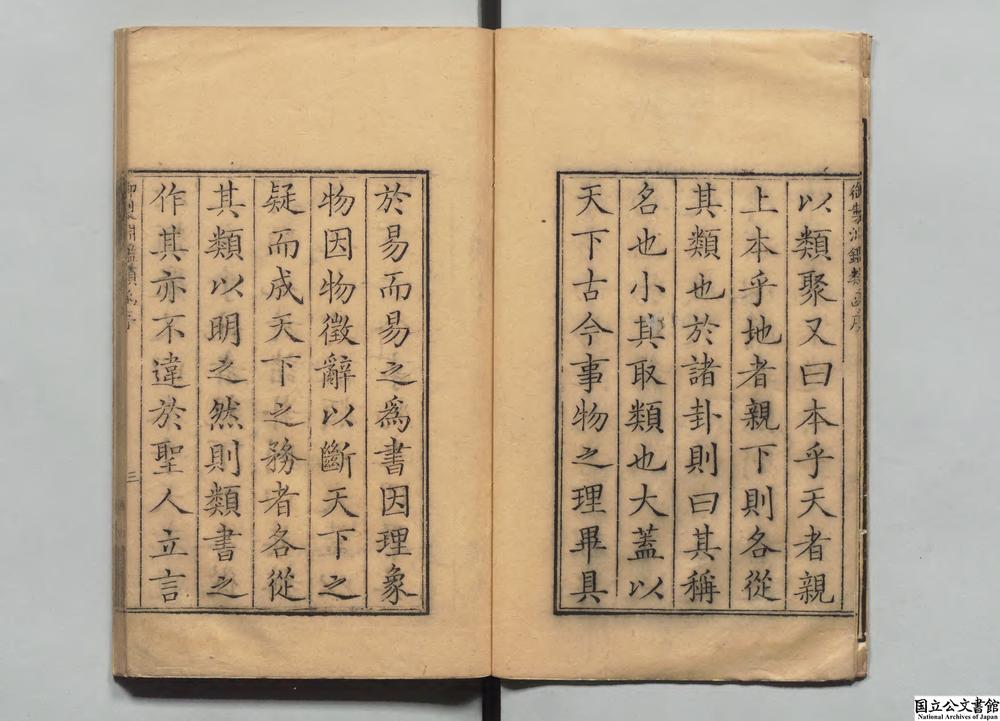 御製淵鑑類函序
以類聚又曰本乎天者親
上本乎地者親下則各從
其類也於諸卦則曰其稱
名也小其取類也大蓋以
天下古今事物之理畢具
於易而易之為書因理象
物因物徵辭以斷天下之
疑而成天下之務者各從
其類以明之然則類書之
作其亦不違於聖人立言
御製淵鑑類函序
三
国立公文書館
National Archives of Japan